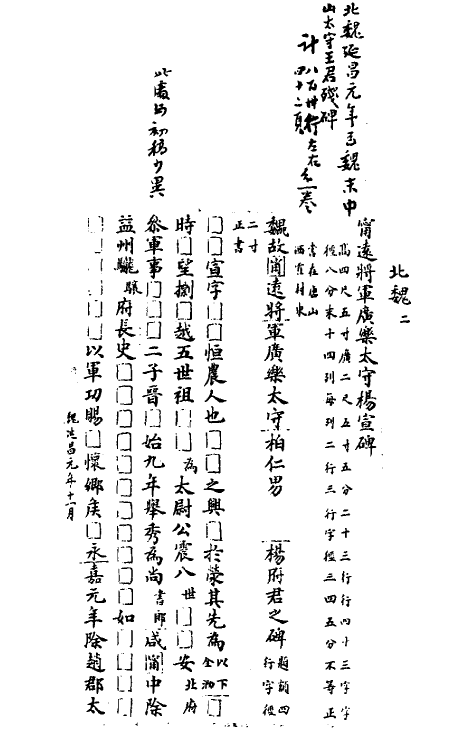 北魏延昌元年訖魏末中
山太守王君殘碑
計八百卅行左右分一卷
四十二頁
此處与初稿少異
北魏二
甯遠將軍廣樂太守楊宣碑
高四尺五寸廣二尺五寸五分二十三行行四十三字字
徑八分末十四列每列二行三行字徑三四五分不等正
書在唐山
西青村東
魏故甯遠將軍廣樂太守柏仁男 楊府君之碑 題額四行字徑
二寸
正書
□□宣字□□恒農人也□□之興□於滎其先為 以下全泐 □
時□望捌□越五世祖□□為太尉公震八世□□安北府
參軍事□□□二子晉□始九年舉秀為尚書郎咸甯中除
益州驪驤府長史□□□□□□□□□□如□□□
□□□□□以軍功賜□懷鄉侯□永嘉元年除趙郡太
魏延昌元年十一月